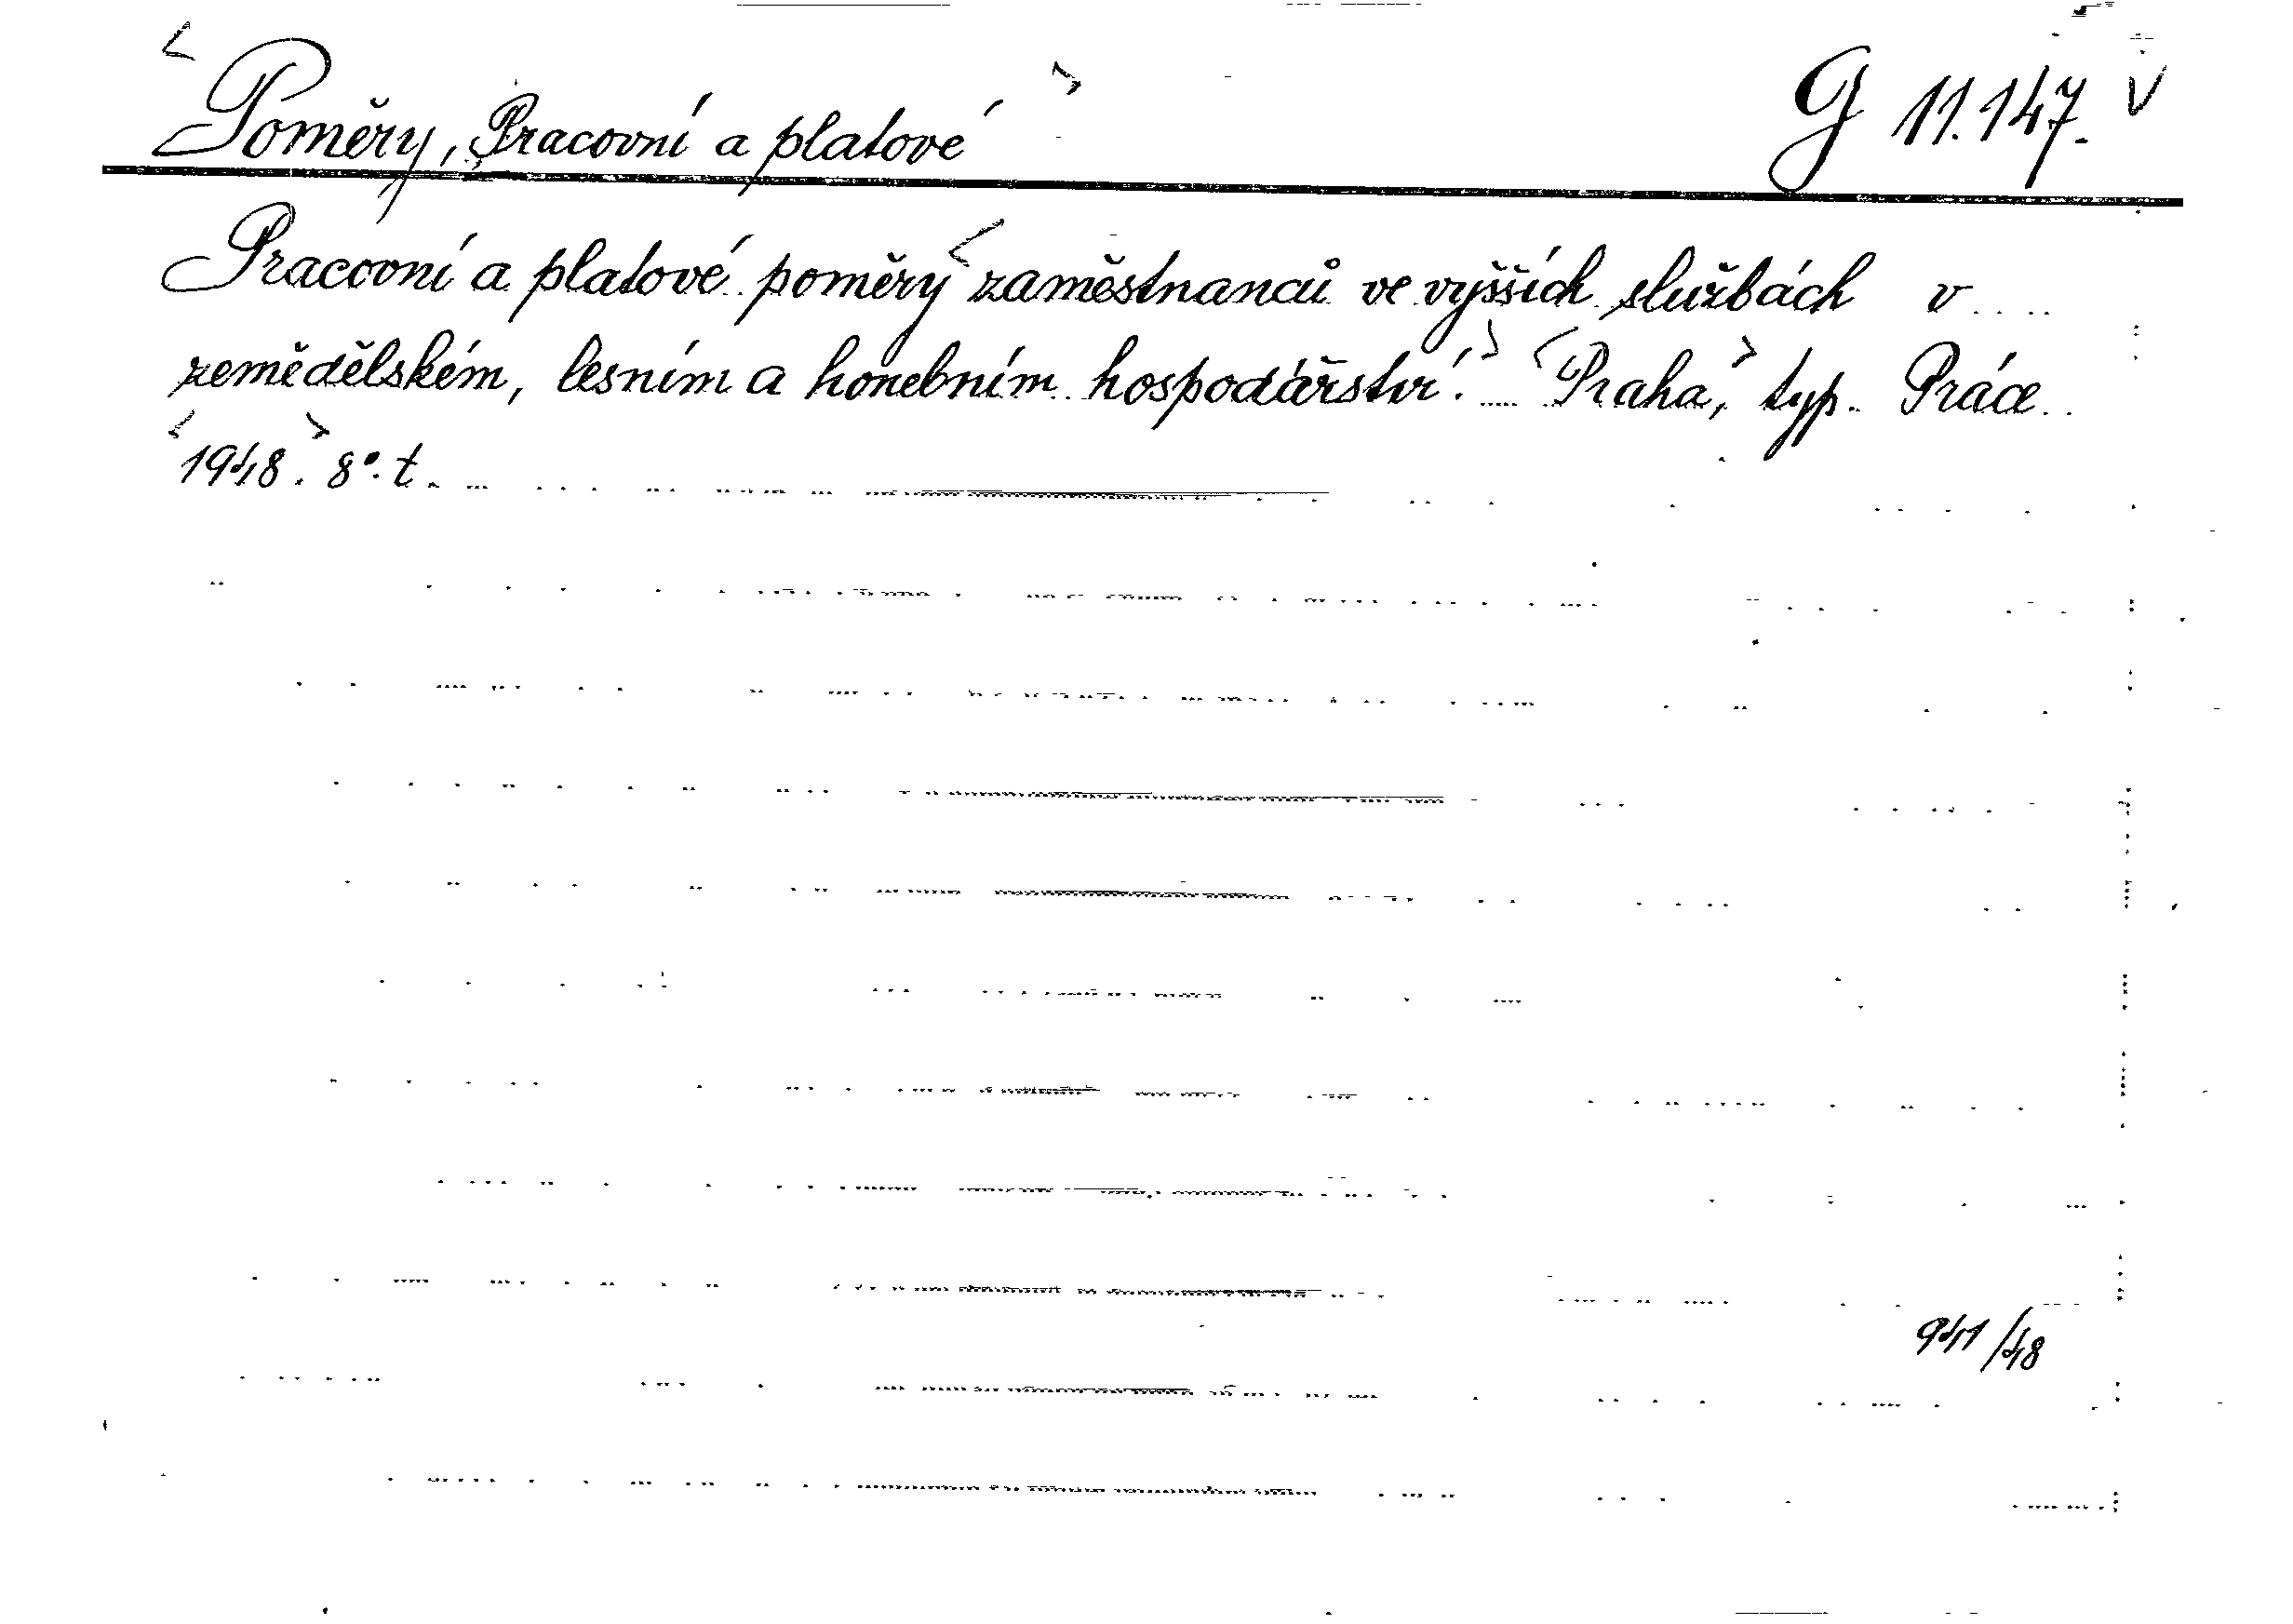 Poměry, Pracovní a platové G 11.147. V
Pracovní a platové poměry zaměstnanců ve vyšších službách v
zemědělském, lesním a honebním hospodářství. Praha, typ. Práce
1948. 8°. t.
941/48